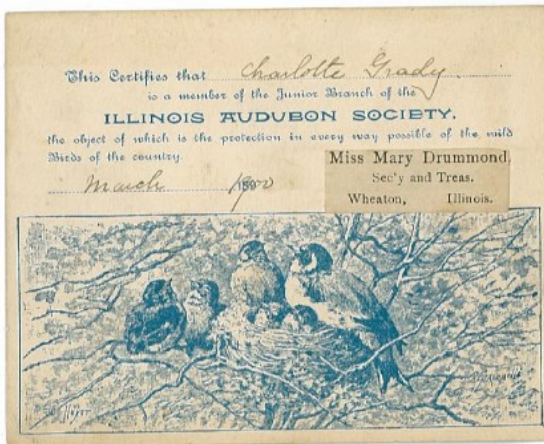 This Certifies that Charlotte Grady
is a member of the Junior Branch of the
ILLINOIS AUDUBON SOCIETY.
the object of which is the protection in every way possible of the wild
Birds of the country.
March 1900
Miss Mary Drummond,
Sec'y and Treas.
Wheaton, Illinois.